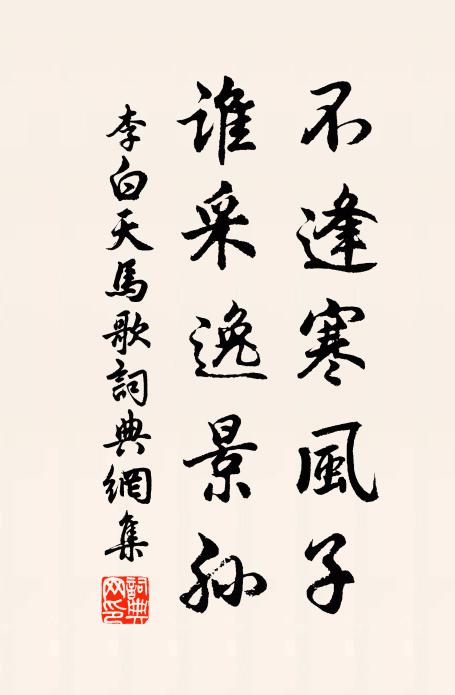 不逢寒風子
誰采逸景孫
李白天馬歌詞典網集
詞典網印